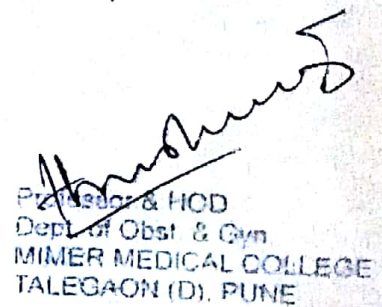 Professor & HOD
Dept. of Obst. & Gyn
MIMER MEDICAL COLLEGE
TALEGAON (D), PUNE